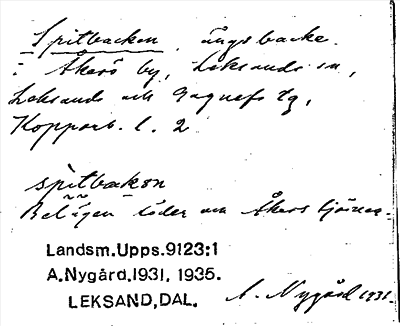 Spitbacken, ängsbacke
i Åkerö by, Leksands sn,
Leksands och Gagnefs tg,
Kopparb. l. 2
spitbackon
Belägen söder om Åkerö
Landsm.Upps.9123:1
A.Nygård,1931, 1935.
LEKSAND,DAL.
A. Nygård 1931.